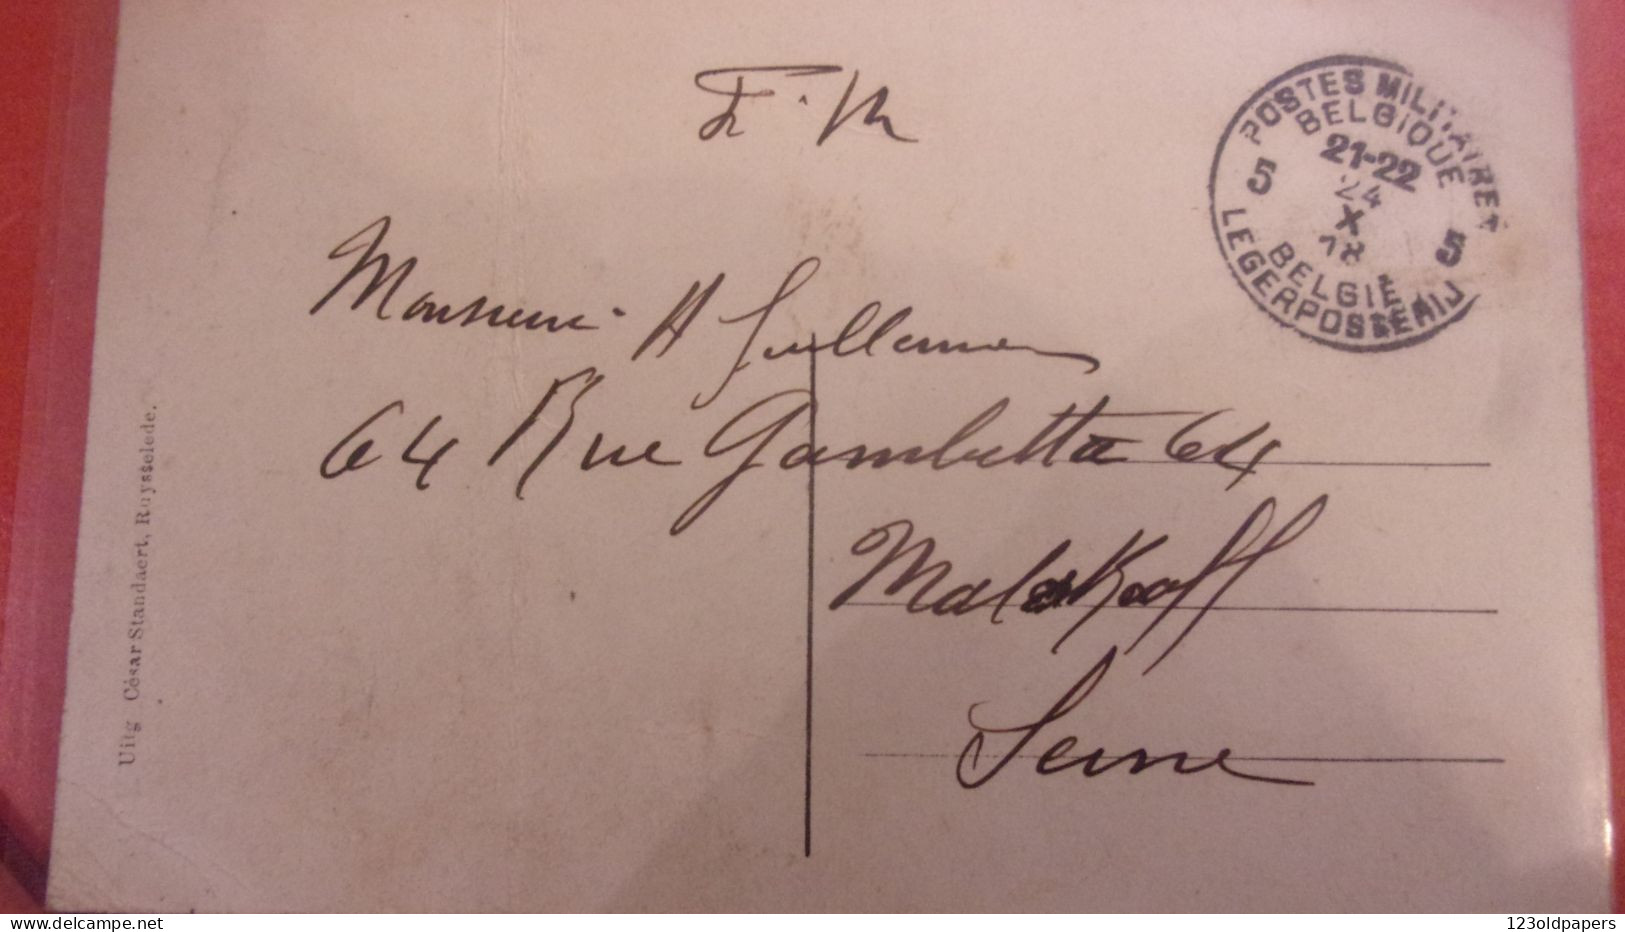 F. M
POSTES MILITAIRES
BELGIQUE
21-22
24
X
18
5 5
BELGIE
LEGERPOSTERIJ
Monsieur A Guillemin
64 Rue Gambetta 64
Malakoff
Seine
Uitg César Standaert, Ruysselede.
delcampe.net
123oldpapers